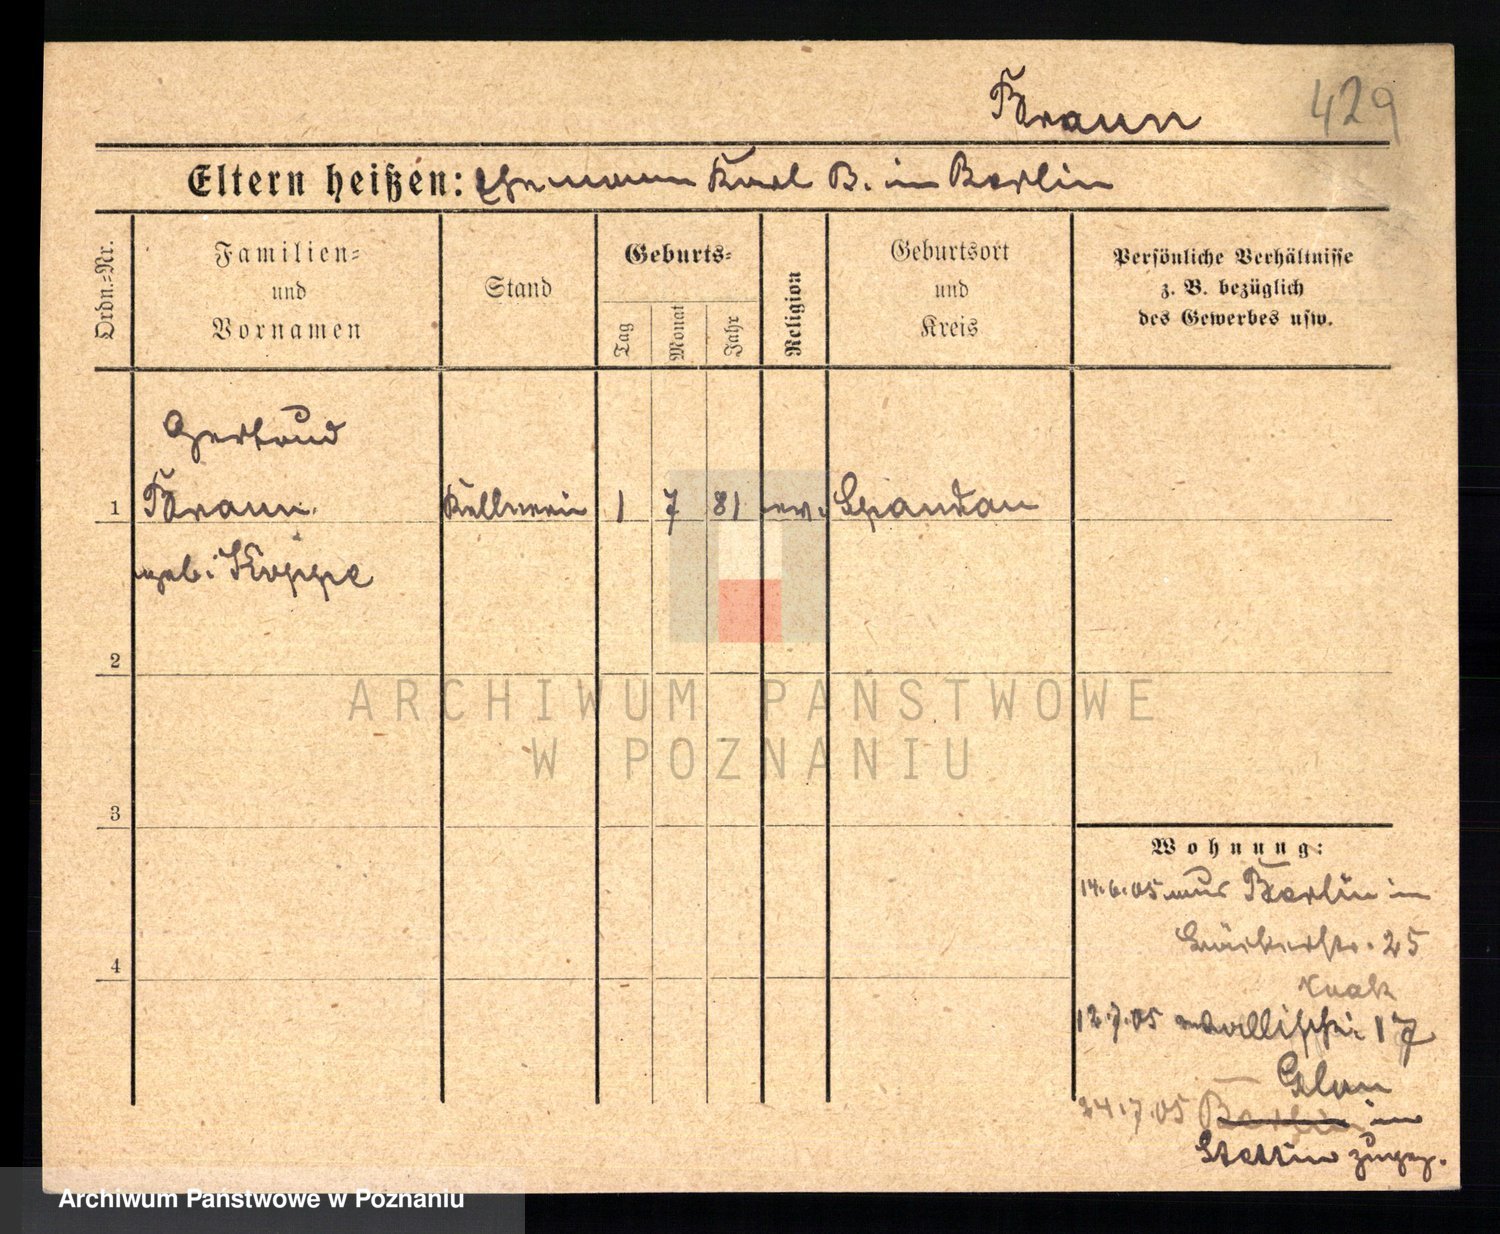 Braun 429
Eltern heißen: Ehemann Karl B. in Berlin
Ordn.-Nr.
Familien-
und
Vornamen
Stand
Geburts-
Tag
Monat
Jahr
Religion
Geburtsort
und
Kreis
Persönliche Verhältnisse
z. B. bezüglich
des Gewerbes usw.
Gertrud
1 Braun Kellnerin 1 7 81 ev. Spandau
geb. Koppe
2
ARCHIWUM PAŃSTWOWE
W POZNANIU
3
Wohnung:
14.6.05 aus Berlin in
25
4
12.7.05 Wallischei 17
24.7.05 Berlin in
Stettin zugez.
Archiwum Państwowe w Poznaniu